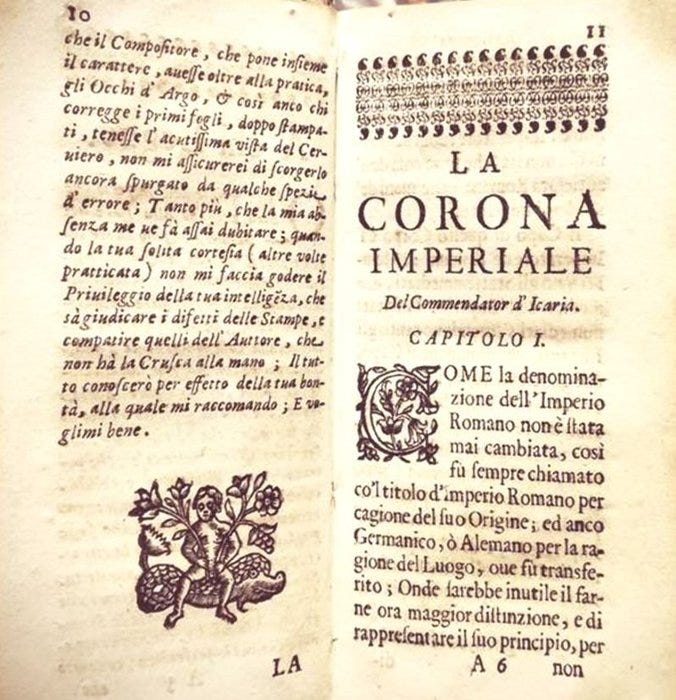 10
che il Compositore, che pone insieme
il carattere, auesse oltre alla pratica,
gli Occhi d' Argo, & così anco chi
corregge i primi fogli, doppo stampa-
ti, tenesse l' acutissima vista del Cer-
uiero, non mi assicurerei di scorgerlo
ancora spurgato da qualche spezie
d' errore; Tanto più, che la mia ab-
senza me ue fà assai dubitare; quan-
do la tua solita cortesia (altre volte
pratticata) non mi faccia godere il
Priuileggio della tua intelligēza, che
sà giudicare i difetti delle Stampe, e
compatire quelli dell' Auttore, che
non hà la Crusca alla mano; Il tut-
to conoscerò per effetto della tua bon-
tà, alla quale mi raccomando; E vo-
glimi bene.
LA
11
LA
CORONA
IMPERIALE
Del Commendator d' Icaria.
CAPITOLO I.
COME la denomina-
zione dell' Imperio
Romano non è stata
mai cambiata, così
fù sempre chiamato
co'l titolo d'Imperio Romano per
cagione del suo Origine; ed anco
Germanico, ò Alemano per la ra-
gione del Luogo, oue fù transfe-
rito; Onde sarebbe inutile il far-
ne ora maggior distinzione, e di
rappresentare il suo principio, per
A 6 non